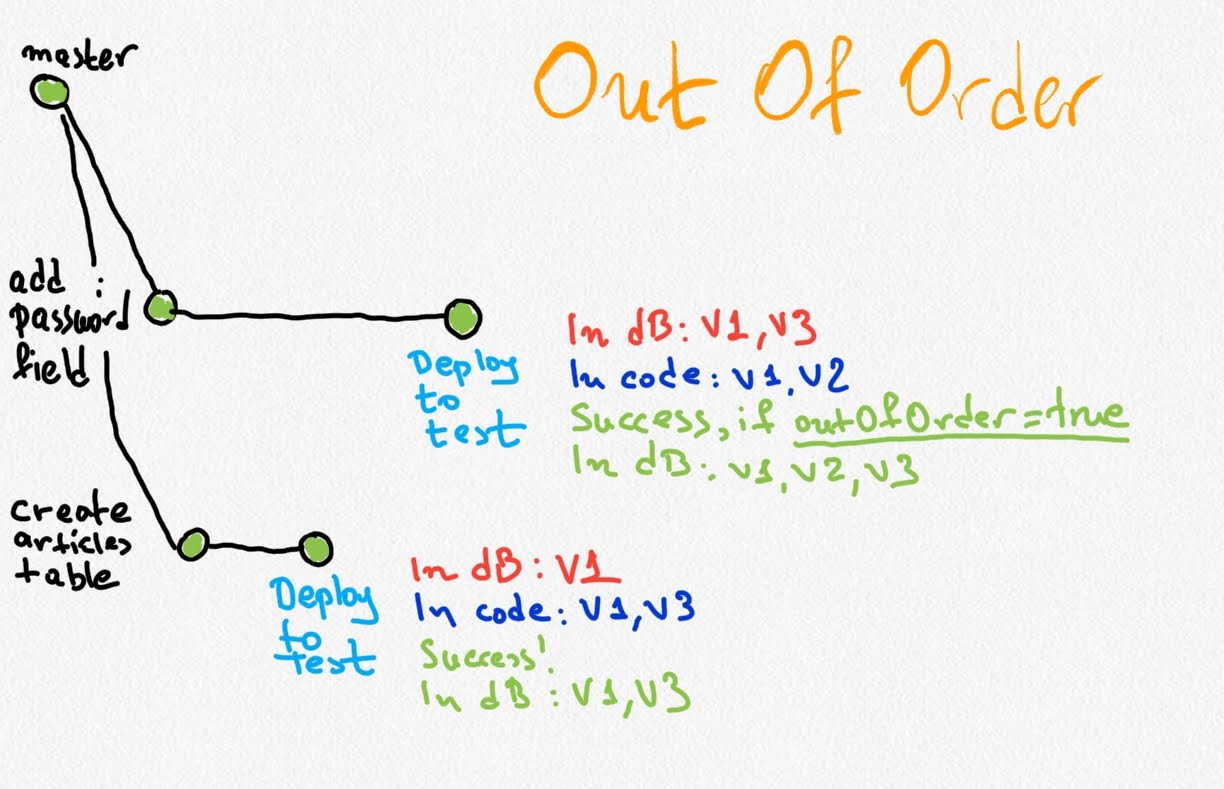 master
Out Of Order
add
password
field
Deploy
to
test
In dB: V1,V3
In code: V1,V2
Success, if outOfOrder=true
In dB: V1,V2,V3
create
articles
table
Deploy
to
test
In dB: V1
In code: V1,V3
Success!
In dB: V1,V3